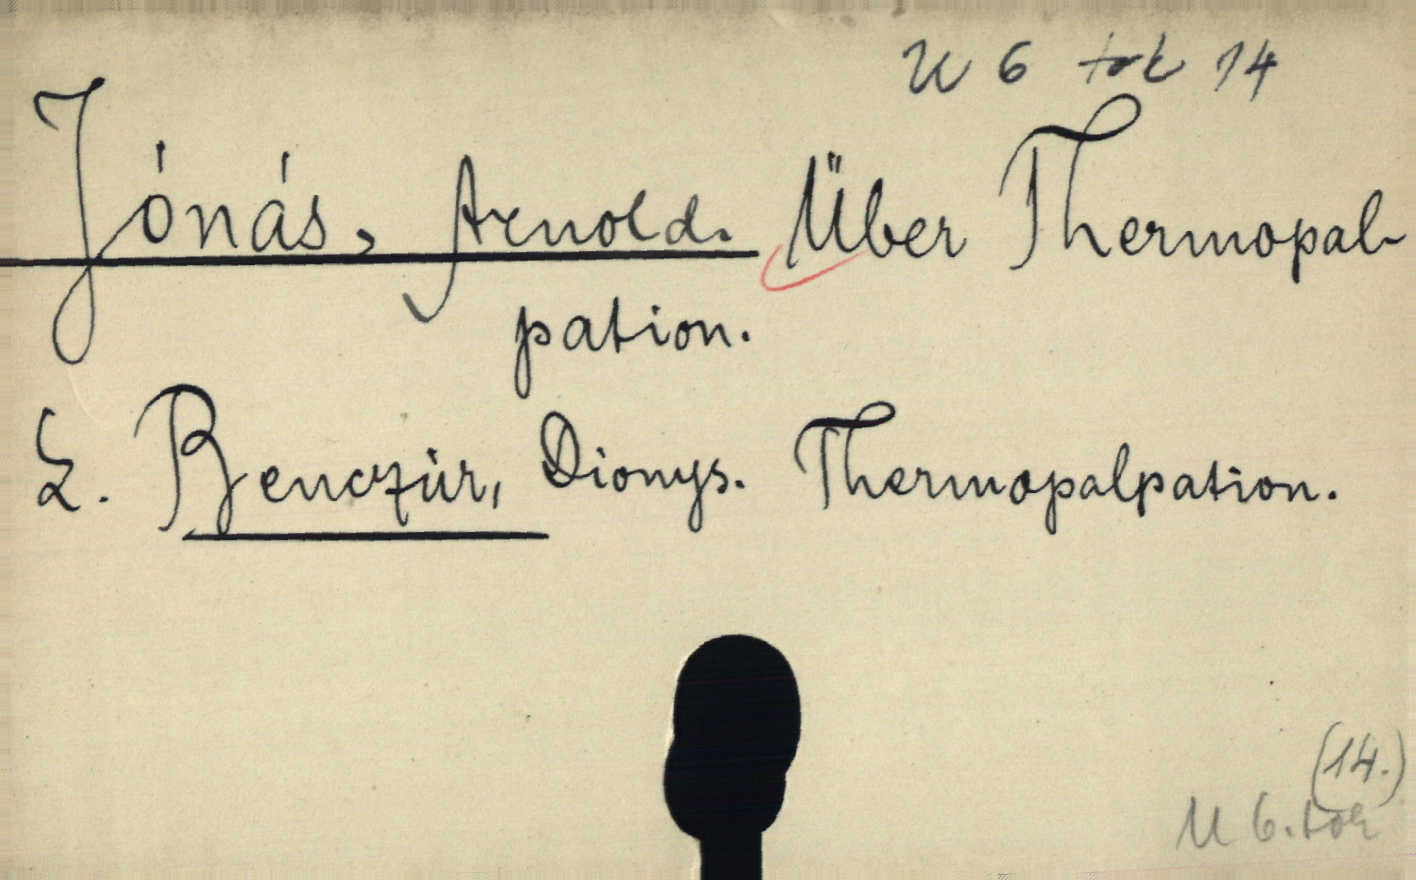 U 6 tok 14
Jónás, Arnold. Über Thermopal-
pation.
L. Benczúr, Dionys. Thermopalpation.
(14.)
U 6. tok